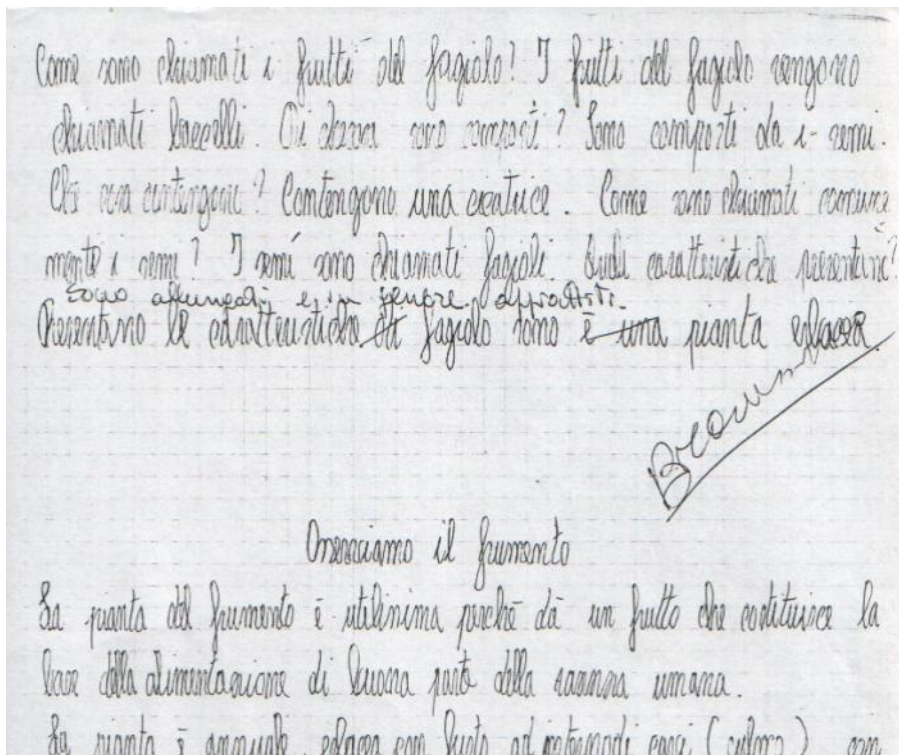 Come sono chiamati i frutti del fagiolo? I frutti del fagiolo vengono
chiamati baccelli. Di che sono composti? Sono composti da i semi.
Che cosa contengono? Contengono una cicatrice. Come sono chiamati comune
mente i semi? I semi sono chiamati fagioli. Quali caratteristiche presentano?
Sono allungati e in genere appiattiti.
Presentano le caratteristiche di fagiolo sono è una pianta erbacea.
Osserviamo il frumento
La pianta del frumento è utilissima perché dà un frutto che costituisce la
base della alimentazione di buona parte della razza umana.
La pianta è annuale, erbacea con fusto ad internodi cavi (culmo) con